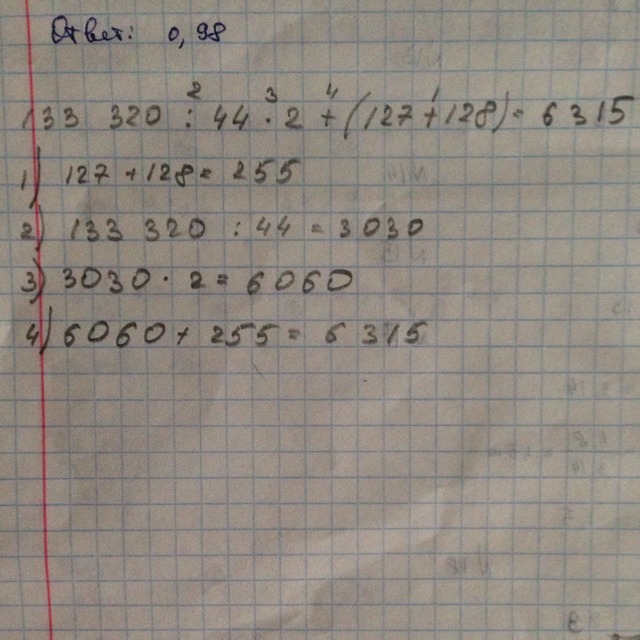 Ответ: 0,98
2 3 4 1
133 320 : 44 · 2 + (127+128) = 6315
1) 127 + 128 = 255
2) 133 320 : 44 = 3030
3) 3030 · 2 = 6060
4) 6060 + 255 = 6315